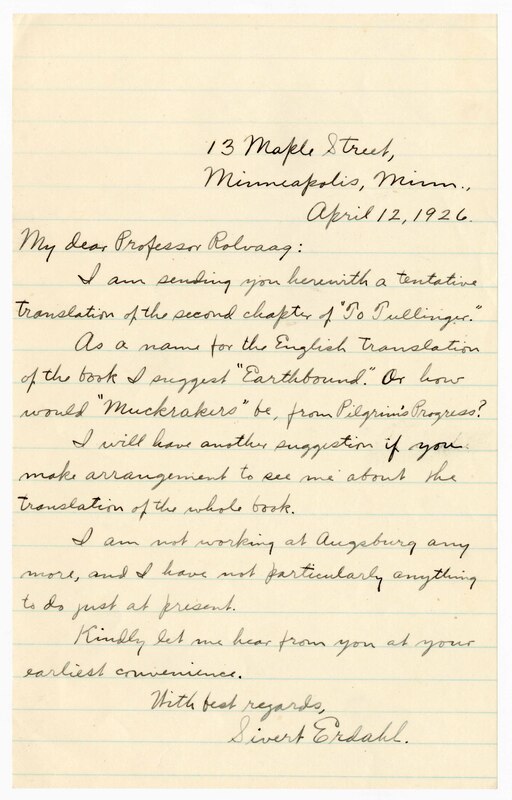 13 Maple Street,
Minneapolis, Minn.,
April 12, 1926.
My dear Professor Rolvaag:
I am sending you herewith a tentative
translation of the second chapter of "To Tullinger."
As a name for the English translation
of the book I suggest "Earthbound." Or how
would "Muckrakers" be, from Pilgrim's Progress?
I will have another suggestion if you
make arrangement to see me about the
translation of the whole book.
I am not working at Augsburg any
more, and I have not particularly anything
to do just at present.
Kindly let me hear from you at your
earliest convenience.
With best regards,
Sivert Erdahl.